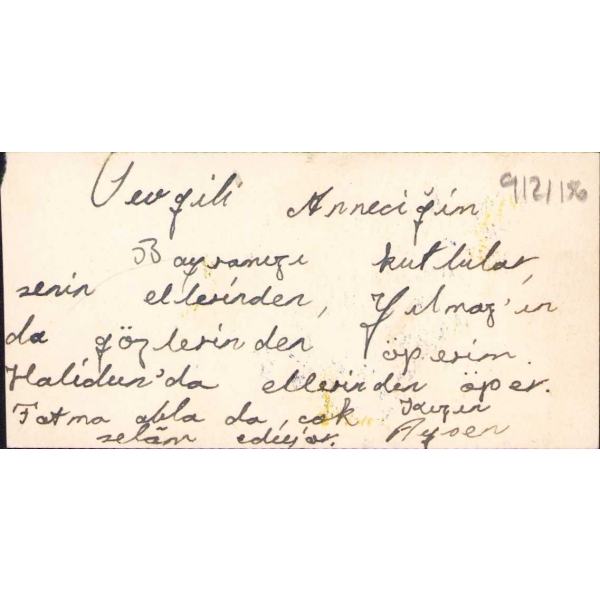 Sevgili Anneciğim
Bayramızı kutlular,
senin ellerinden, Yılmaz'ın
da gözlerinden öperim.
Halidun'da ellerinden öper.
Fatma abla da çok
selâm ediyor.
Kızın
Ayşen